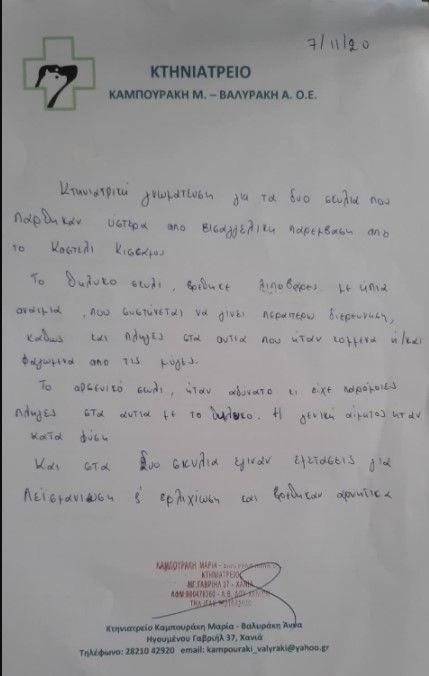 7/11/20
ΚΤΗΝΙΑΤΡΕΙΟ
ΚΑΜΠΟΥΡΑΚΗ Μ. – ΒΑΛΥΡΑΚΗ Α. Ο.Ε.
Κτηνιατρική γνωμάτευση για τα δυο σκυλιά που
πάρθηκαν ύστερα απο εισαγγελική παρέμβαση απο
το Καστέλι Κισσάμου
Το θηλυκο σκυλι, βρέθηκε λιποβαρες με ήπια
αναιμία, που συστήνεται να γίνει περαιτέρω διερευνηση,
καθως και πληγες στα αυτια που ήταν κομμενα ή/και
φαγωμενα απο τις μύγες.
Το αρσενικό σκυλι, ήταν αδύνατο κι είχε παρόμοιες
πληγες στα αυτια με το θηλυκο. Η γενική αίματος ήταν
κατα φύση
Και στα δυο σκυλια εγιναν εξετάσεις για
Λεϊσμανιωση & ερλιχίωση και βρέθηκαν αρνητικα
ΚΑΜΠΟΥΡΑΚΗ ΜΑΡΙΑ -
ΚΤΗΝΙΑΤΡΕΙΟ
ΗΓ.ΓΑΒΡΙΗΛ 37 - ΧΑΝΙΑ
Κτηνιατρείο Καμπουράκη Μαρία - Βαλυράκη Άννα
Ηγουμένου Γαβριήλ 37, Χανιά
Τηλέφωνο: 28210 42920 email: kampouraki_valyraki@yahoo.gr